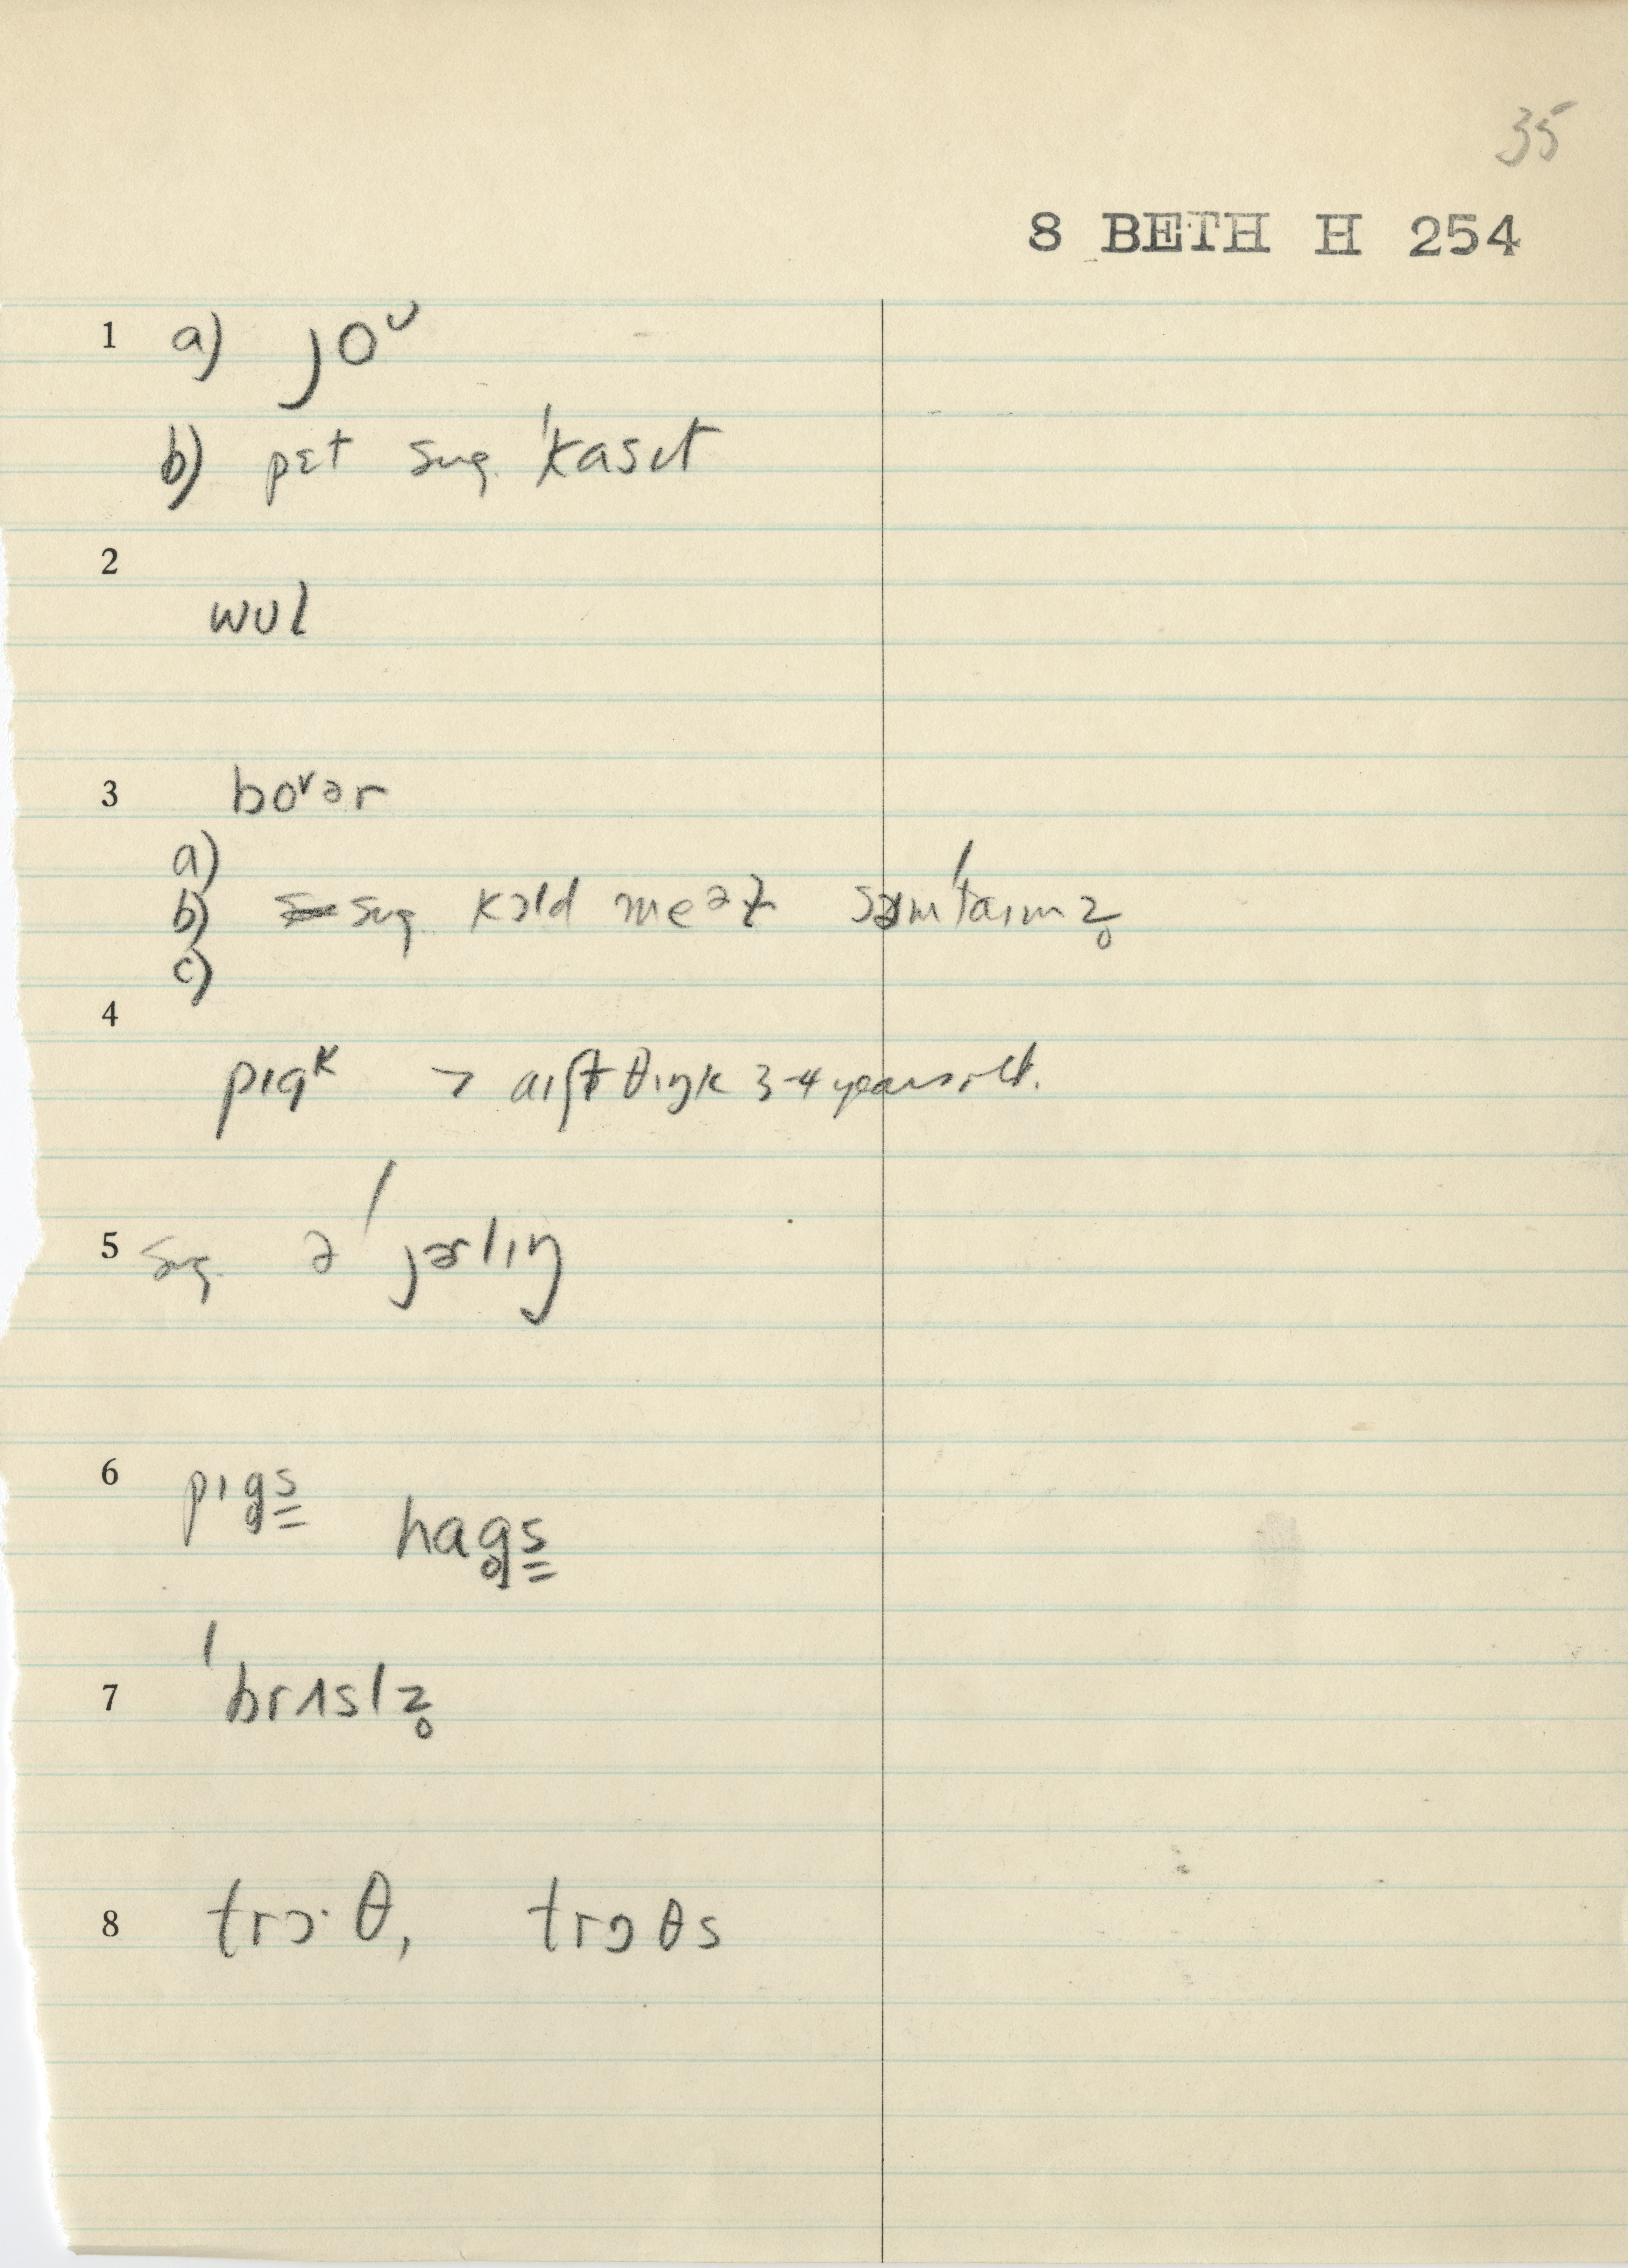 35
8 BETH H 254
1 a) joᴗ
b) pɛt sug. ˈkasɛt
2
wʊl
3 boᵛər
a)
b) sug. kɔld meət səmˈtaɪmz̥
c)
4
pɪgᵏ > aɪft θɪŋk 3-4 years old.
5 sug. ə ˈjərlɪŋ
6 pɪg̥s̳ hag̥s̳
7 ˈbrʌslz̥
8 trɔ·θ, trɔθs